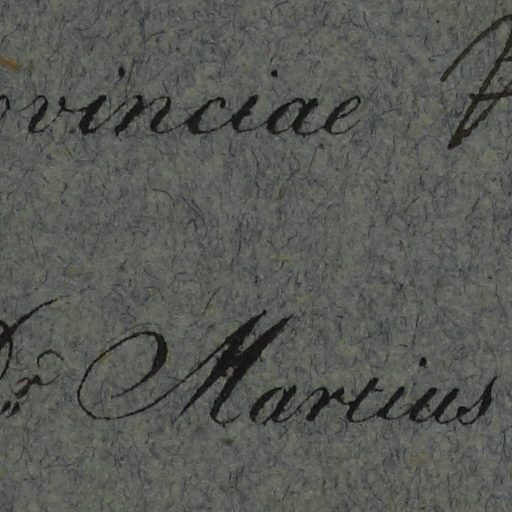 ovinciae
Dr Martius